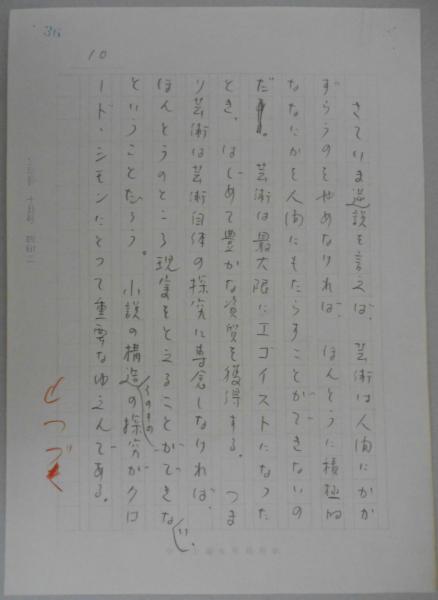 36
10
さていま逆説を言えば、芸術は人間にかか
ずらうのをやめなければ、ほんとうに積極的
ななにかを人間にもたらすことができないの
だ。芸術は最大限にエゴイストになった
とき、はじめて豊かな資質を獲得する。つま
り芸術は芸術自体の探究に専念しなければ、
ほんとうのところ現実をとえることができな
い。
ということだろう。小説の構造の探究がクロ
そのもの
ード・シモンにとって重要なゆえんである。
つづく